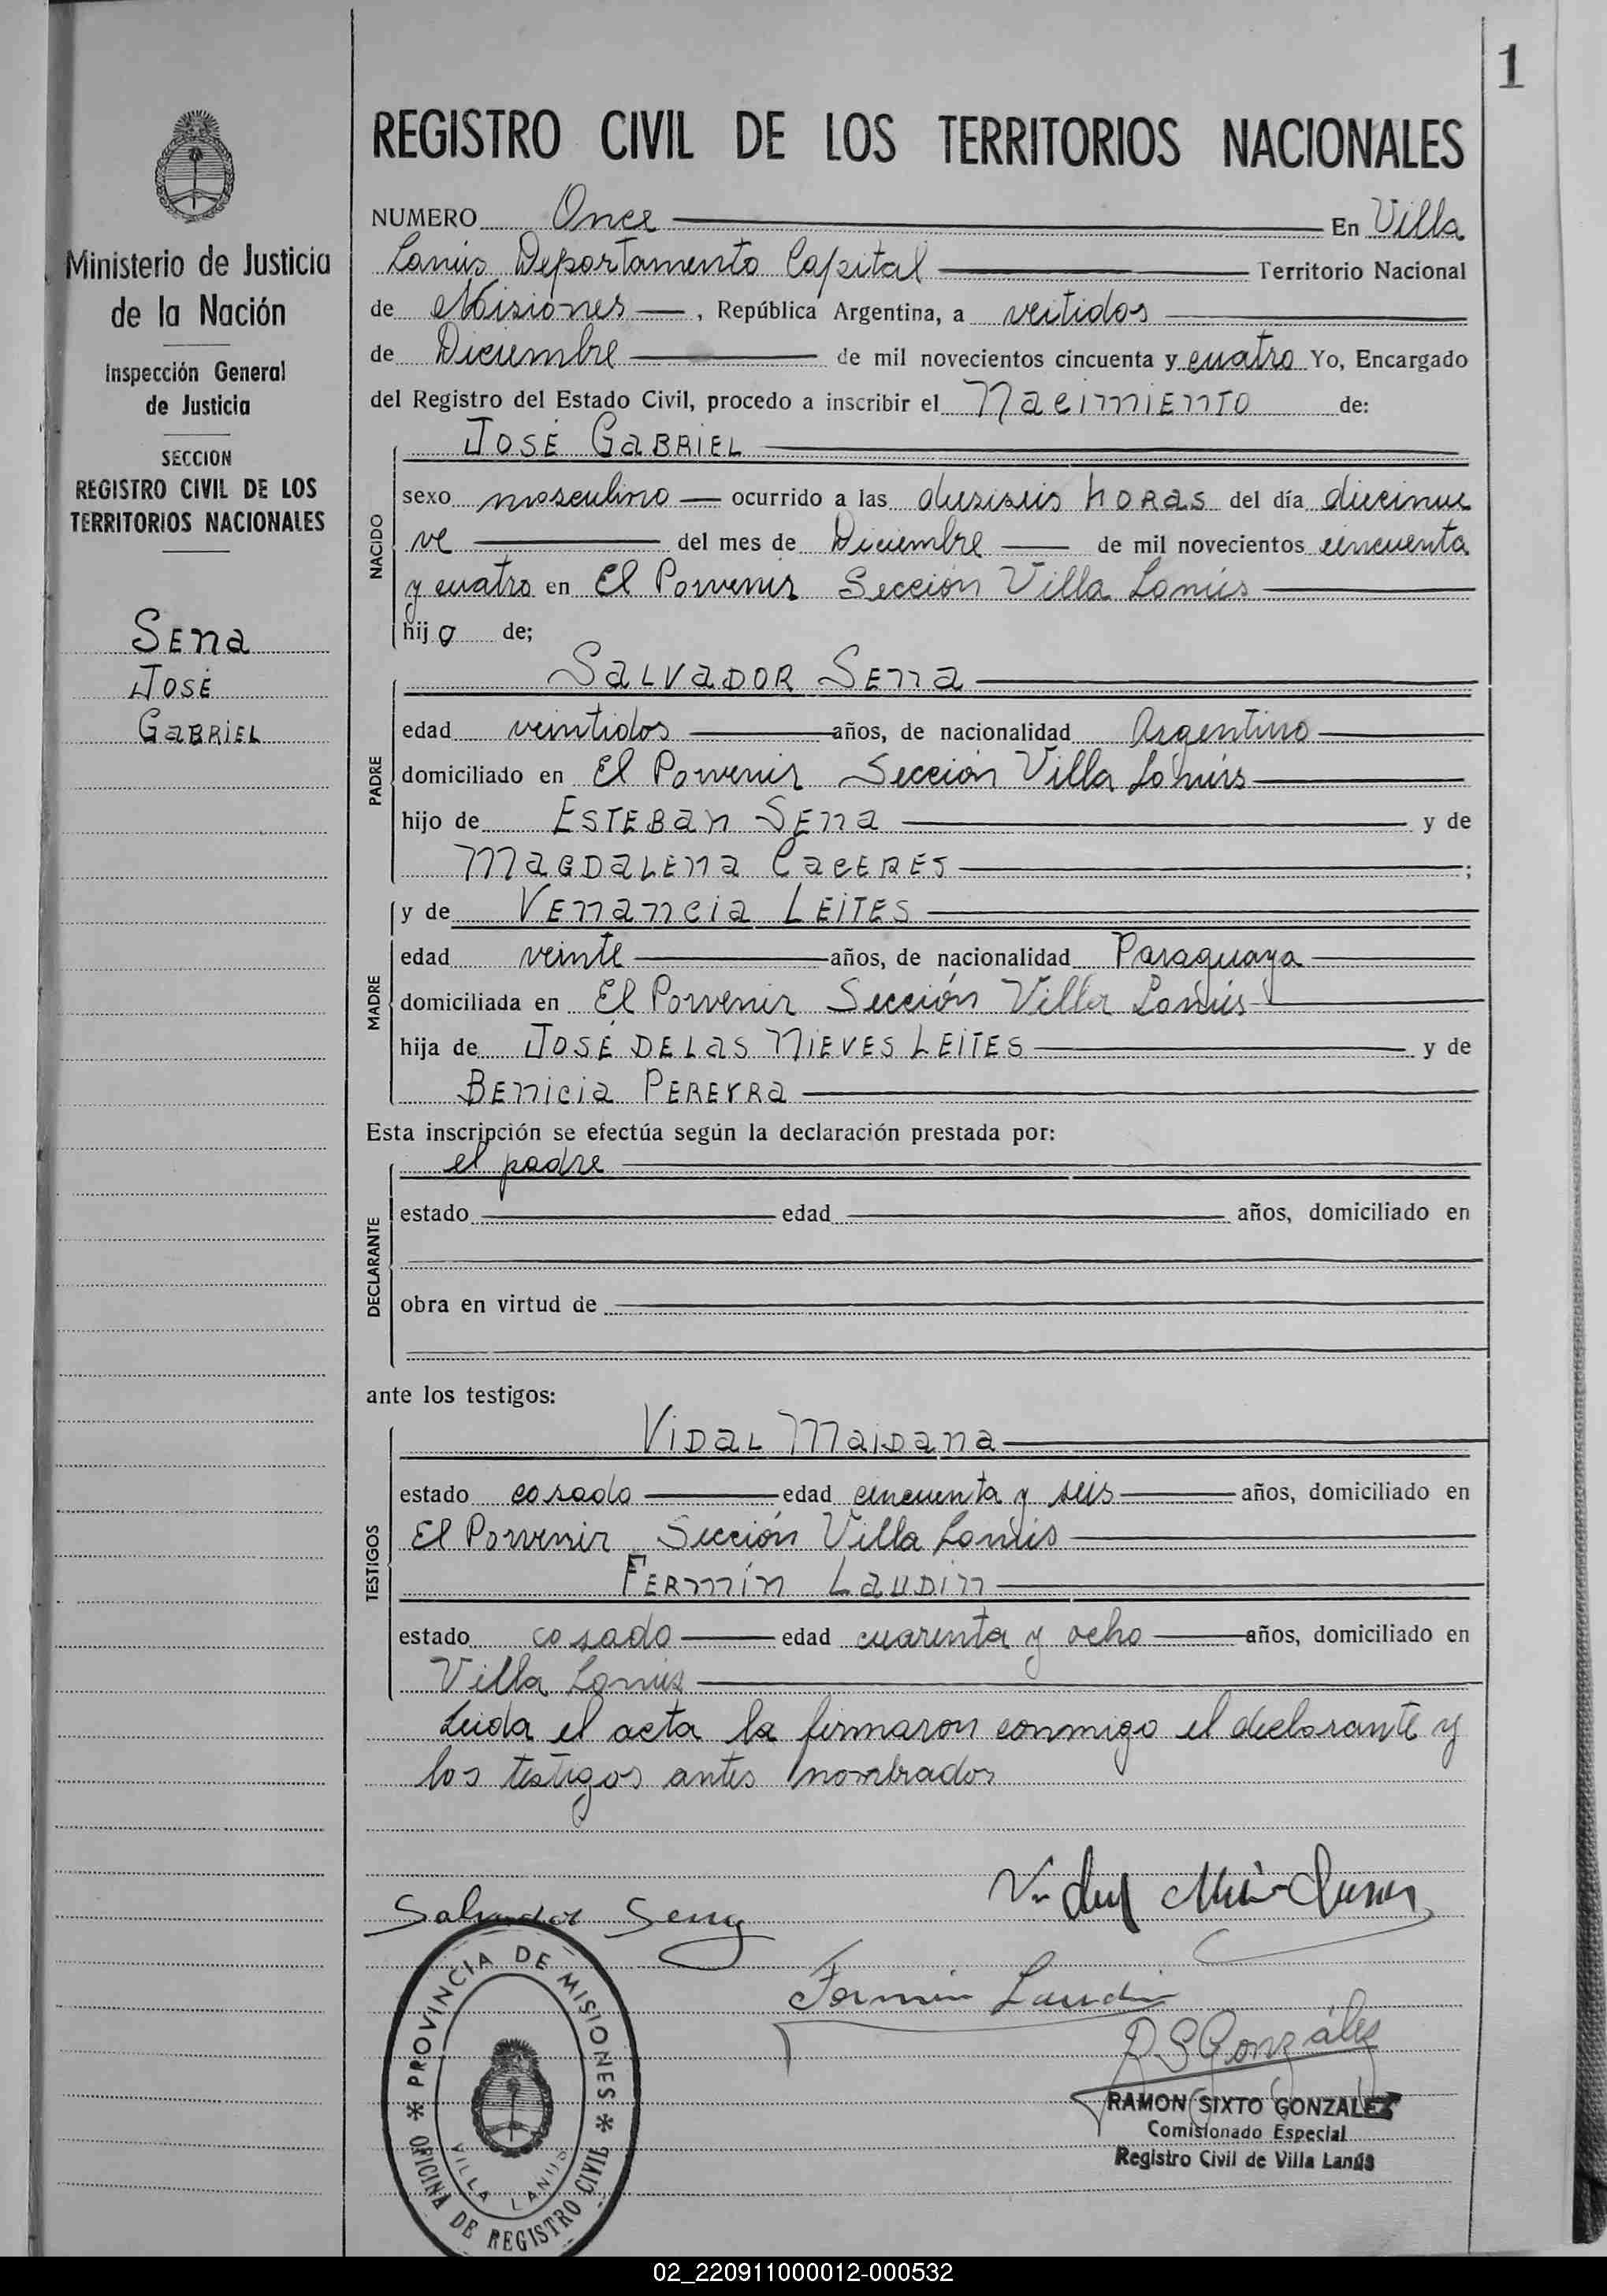 1
REGISTRO CIVIL DE LOS TERRITORIOS NACIONALES
Ministerio de Justicia
de la Nación
Inspección General
de Justicia
SECCION
REGISTRO CIVIL DE LOS
TERRITORIOS NACIONALES
SENa
JOSÉ
GaBRiEL
NUMERO Once En Villa
Lanús Departamento Capital Territorio Nacional
de Misiones, República Argentina, a veitidos
de Diciembre de mil novecientos cincuenta y cuatro Yo, Encargado
del Registro del Estado Civil, procedo a inscribir el NacimiENTO de:
NACIDO
JOSÉ GaBRiEL
sexo masculino ocurrido a las dieziseis HORas del día diecinue
ve del mes de Diciembre de mil novecientos cincuenta
y cuatro en El Porvenir Sección Villa Lanús
hijo de;
PADRE
SaLVaDOR SENa
edad veintidos años, de nacionalidad Argentino
domiciliado en El Porvenir Sección Villa Lanús
hijo de ESTEBaN SENa y de
MaGDaLENa CaCERES ;
MADRE
y de VENaNcia LEiTES
edad veinte años, de nacionalidad Paraguaya
domiciliada en El Porvenir Sección Villa Lanús
hija de JOSÉ DE Las NiEVES LEiTES y de
BENicia PEREYRa
Esta inscripción se efectúa según la declaración prestada por:
DECLARANTE
el padre
estado edad años, domiciliado en
obra en virtud de
ante los testigos:
TESTIGOS
ViDaL MaiDaNa
estado casado edad cincuenta y seis años, domiciliado en
El Porvenir Sección Villa Lanús
FERMíN LaUDiN
estado casado edad cuarenta y ocho años, domiciliado en
Villa Lanús
Leida el acta la firmaron conmigo el declarante y
los testigos antes nombrados
Vidal Maidana
Salvador Sena
Fermin Laudin
R S González
PROVINCIA DE MISIONES
VILLA LANUS
* OFICINA DE REGISTRO CIVIL *
RAMON SIXTO GONZALEZ
Comisionado Especial
Registro Civil de Villa Lanús
02_220911000012-000532